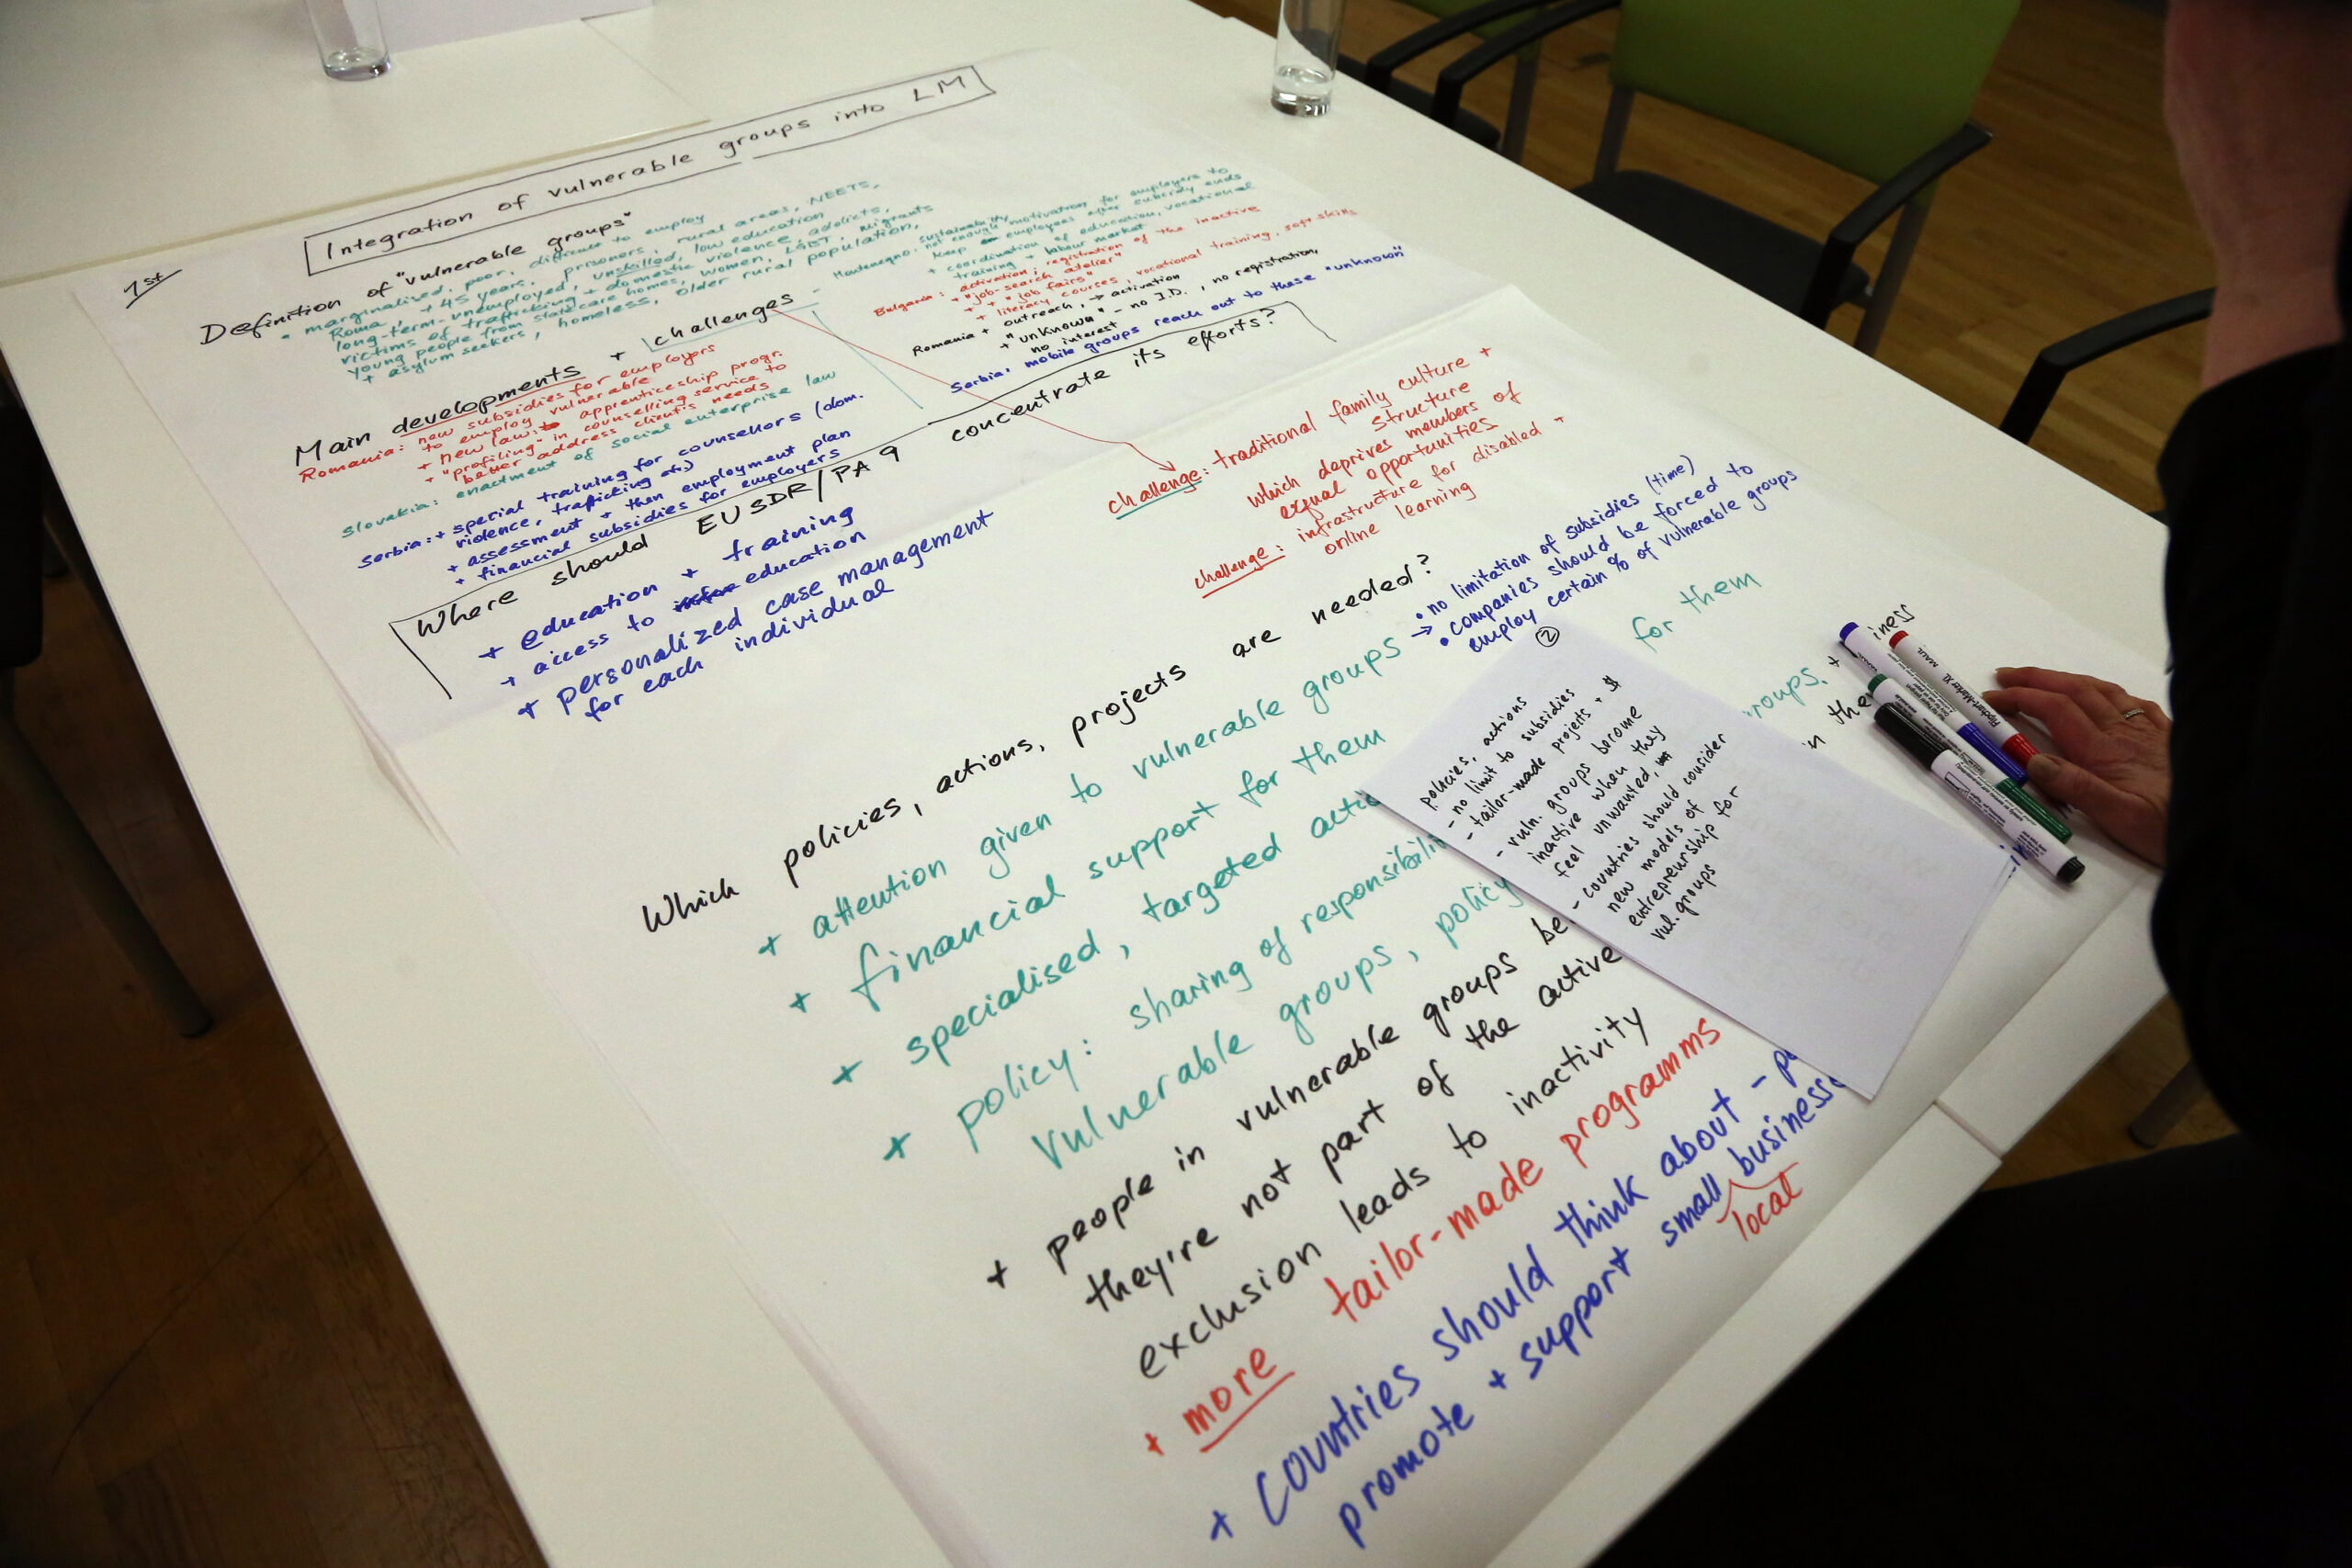 Integration of vulnerable groups into LM
1st
Definition of "vulnerable groups"
marginalised, poor, difficult to employ
Roma, + 45 years, prisoners, rural areas, NEETS,
long-term-unemployed, unskilled, low education
victims of trafficking + domestic violence, addicts,
young people from state care homes, women, LGBT, migrants
+ asylum seekers, homeless, older rural population,
Main developments + challenges
Romania: new subsidies for employers
to employ vulnerable
+ new law: apprenticeship progr.
+ "profiling" in counselling service to
better address client's needs
Slovakia: enactment of social enterprise law
Serbia: + special training for counsellors (dom.
violence, trafficking etc)
+ assessment + then employment plan
+ financial subsidies for employers
Montenegro: sustainability
not enough motivation for employers to
keep employees after subsidy ends
+ coordination of education, vocational
training + labour market
Bulgaria: activation; registration of the inactive
+ "job-search atelier"
+ "job fairs"
+ literacy courses, vocational training, soft skills
Romania + outreach, → activation
+ "unknown" - no I.D., no registration,
no interest
Serbia: mobile groups reach out to these "unknown"
Where should EUSDR/PA 9 concentrate its efforts?
+ education + training
+ access to education
+ personalized case management
for each individual
challenge: traditional family culture +
structure
which deprives members of
equal opportunities
challenge: infrastructure for disabled +
online learning
Which policies, actions, projects are needed?
+ attention given to vulnerable groups →
• no limitation of subsidies (time)
• companies should be forced to
employ certain % of vulnerable groups
+ financial support for them
for them
+ specialised, targeted
+ policy: sharing of
vulnerable groups, policy
groups. +
iness
in
+ people in vulnerable groups
they're not part of the active
exclusion leads to inactivity
+ more tailor-made programms
+ Countries should think about -
promote + support small
local
2
policies, actions
- no limit to subsidies
- tailor-made projects + $
- vuln. groups become
inactive when they
feel unwanted,
- countries should consider
new models of
entrepreurship for
vul. groups
MAUL
Flipchart-Marker XL